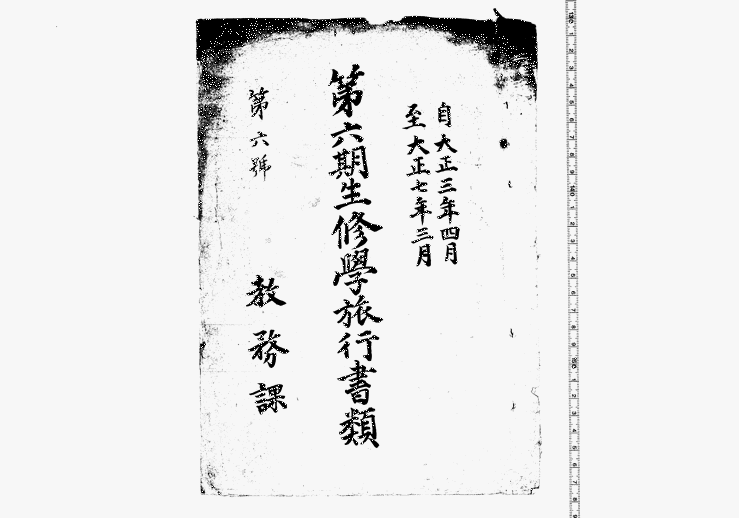 自大正三年四月
至大正七年三月
第六期生修學旅行書類
第六號
教務課